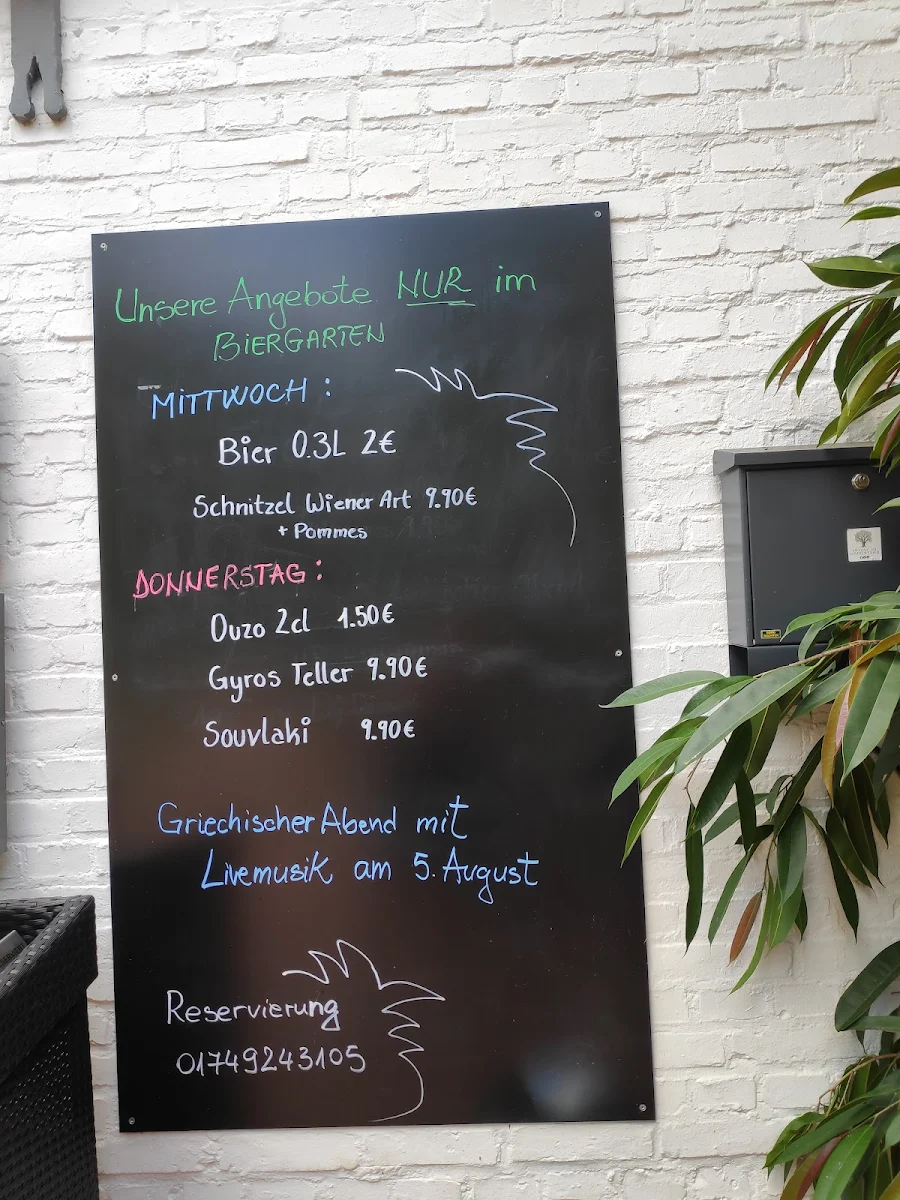 Unsere Angebote NUR im
BiERGARTEN
MiTTWOCH :
Bier 0.3L 2€
Schnitzel Wiener Art 9.90€
+ Pommes
DONNERSTAG :
Ouzo 2cl 1.50€
Gyros Teller 9.90€
Souvlaki 9.90€
Griechischer Abend mit
Livemusik am 5. August
Reservierung
01749243105